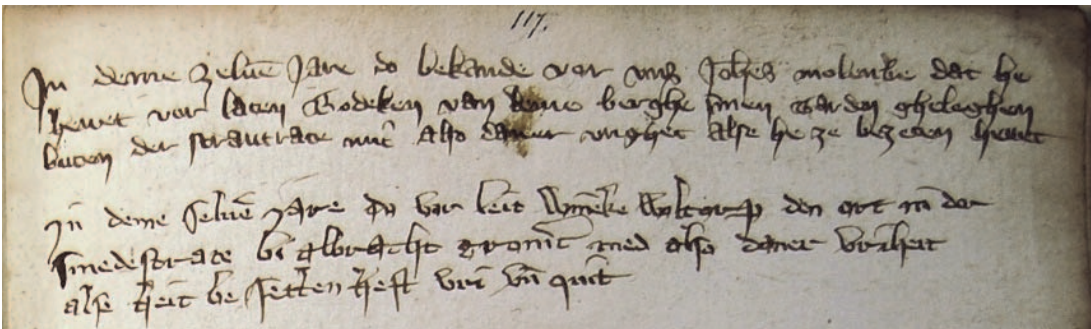 117.
In deme zeluē Jare do bekande vor vns Johēs molenbeke dat he
heuet vor laten Godeken van deme berghe sinen Garden gheleghen
buten der strate mit also daner vrigheit alse he ze bezeten heuet
In deme seluē Jare do vor leit den ort in der
smedestrate bi albracht med also daner vriheit
alse heit be setten heft vri vn̄ quit